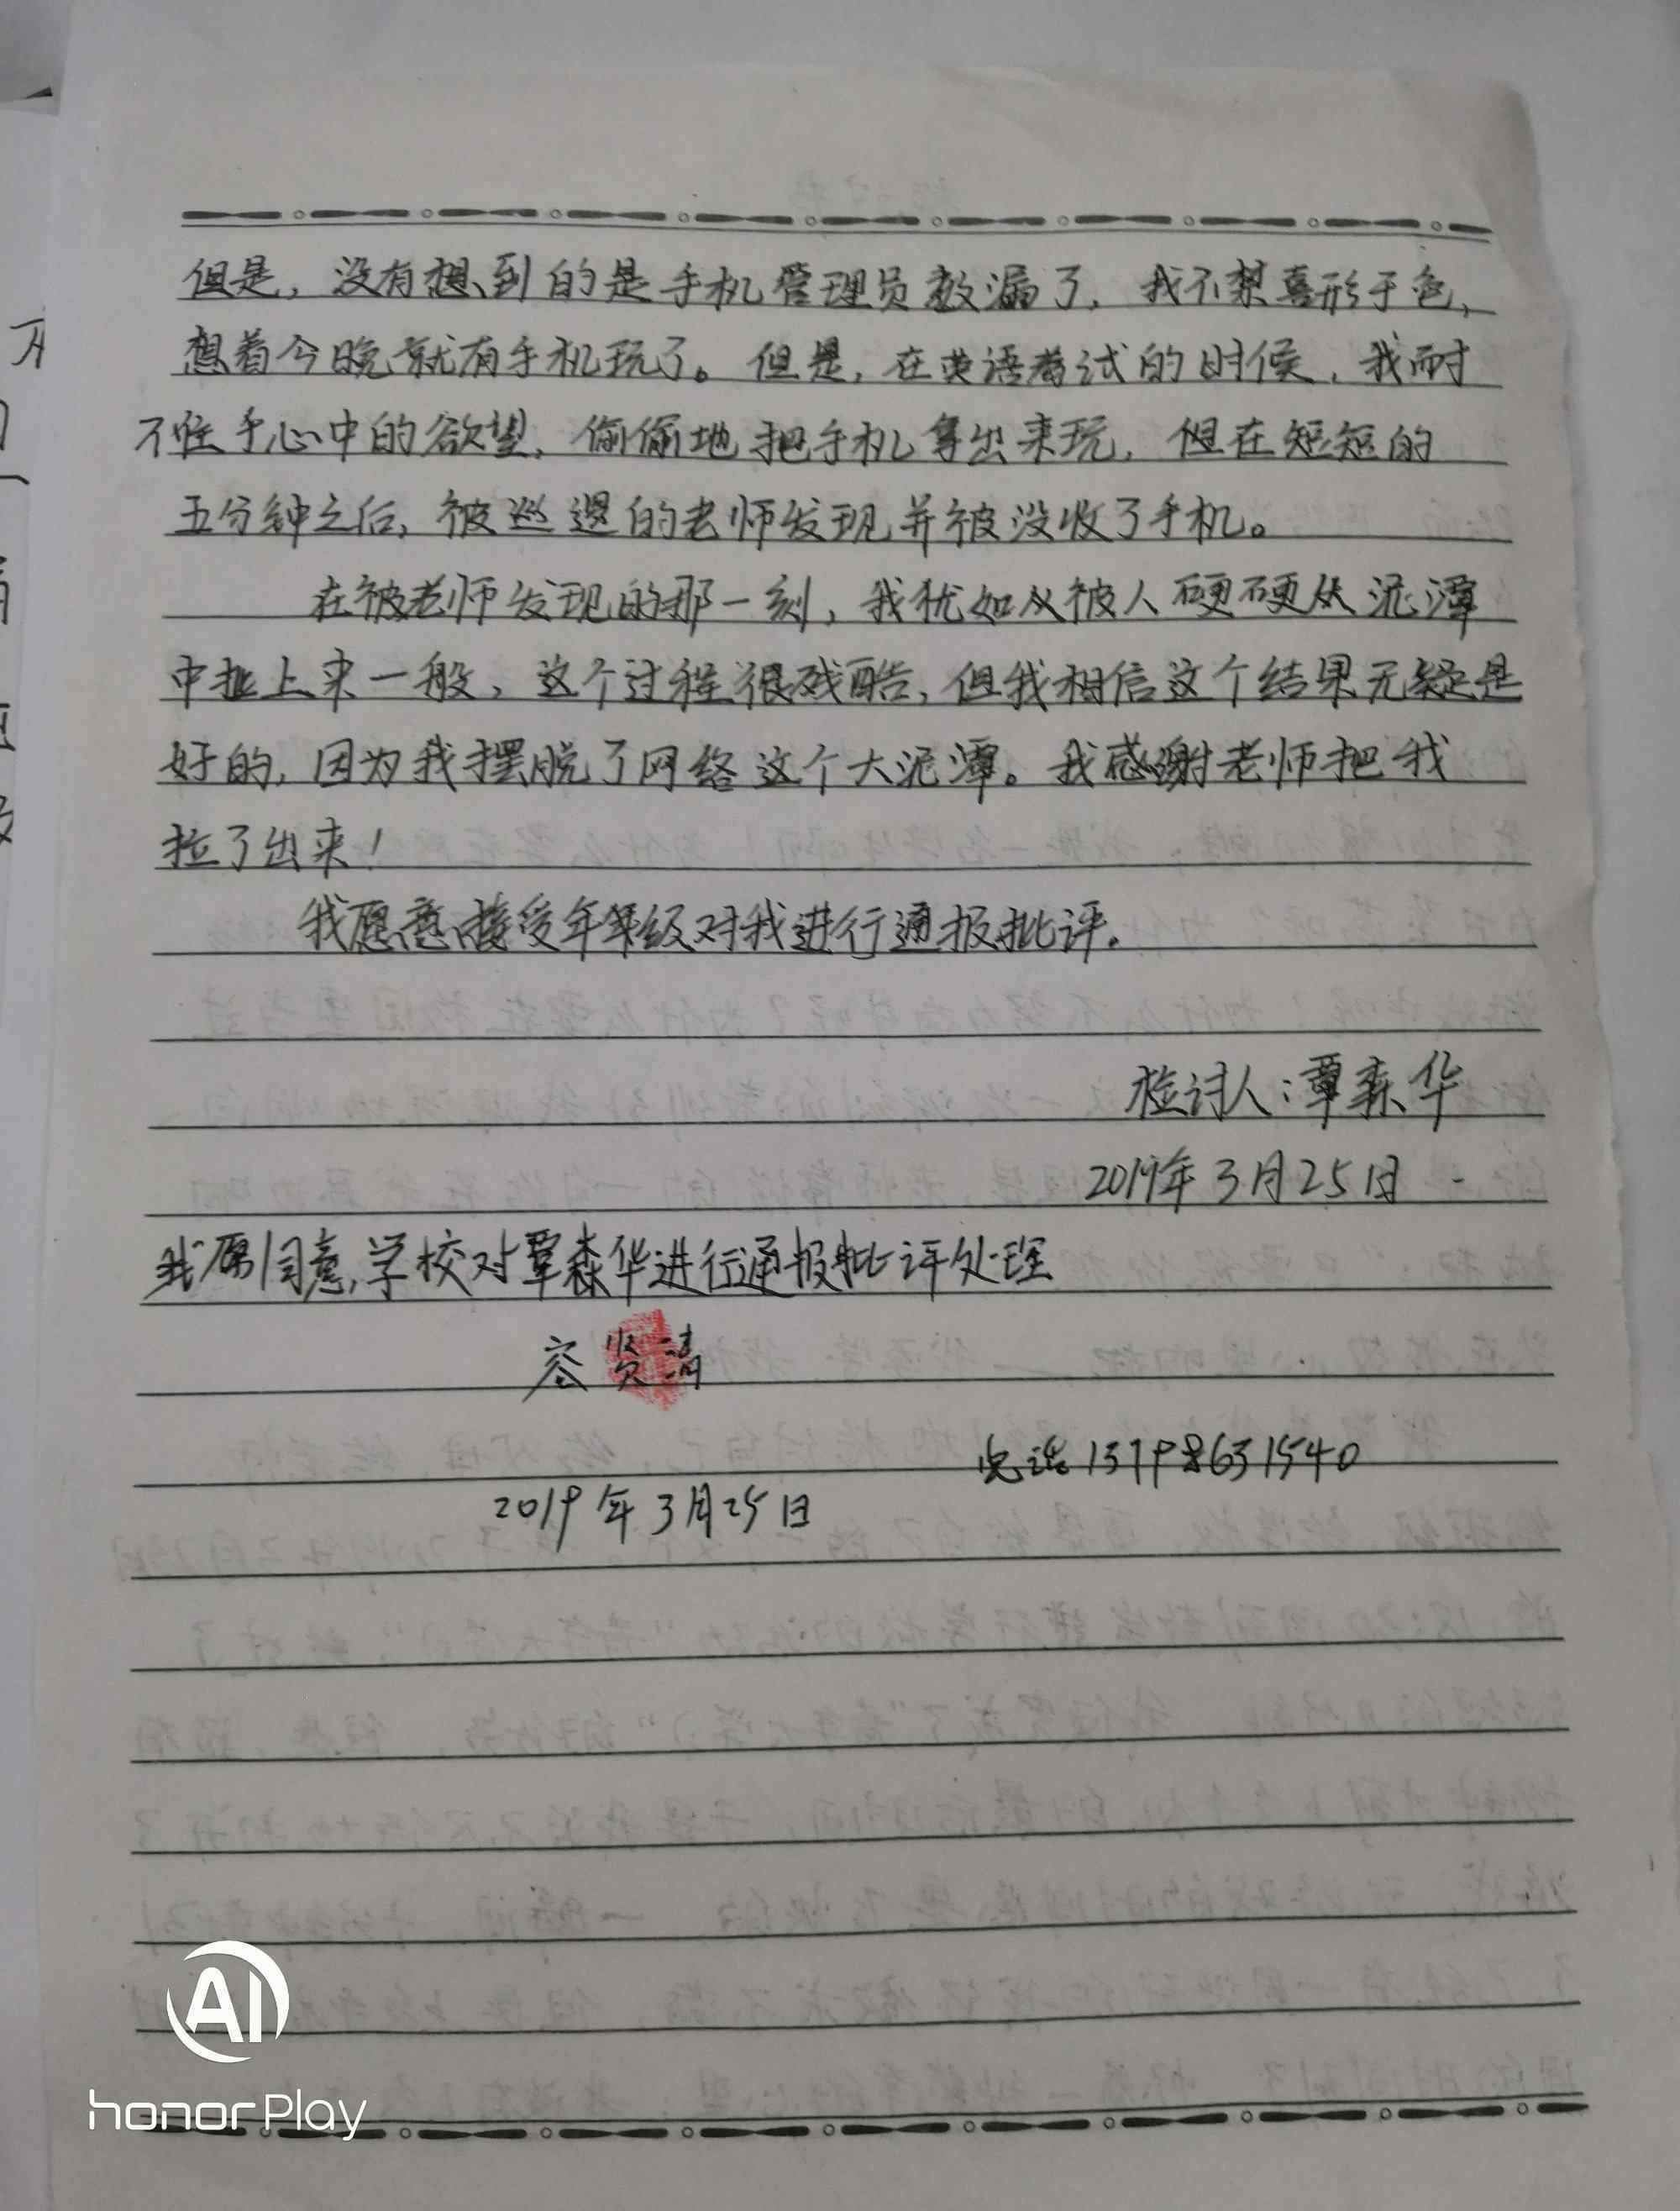 但是，没有想到的是手机管理员数漏了，我不禁喜形于色，
想着今晚就有手机玩了。但是，在英语考试的时候，我耐
不住手心中的欲望，偷偷地把手机拿出来玩，但在短短的
五分钟之后，被巡逻的老师发现并被没收了手机。
在被老师发现的那一刻，我犹如从被人硬硬从泥潭
中扯上来一般，这个过程很残酷，但我相信这个结果无疑是
好的，因为我摆脱了网络这个大泥潭。我感谢老师把我
拉了出来！
我愿意接受年年级对我进行通报批评。
检讨人：覃森华
2019年3月25日
我愿同意，学校对覃森华进行通报批评处理
容贤清
电话 13798631540
2019年3月25日
AI
honor Play